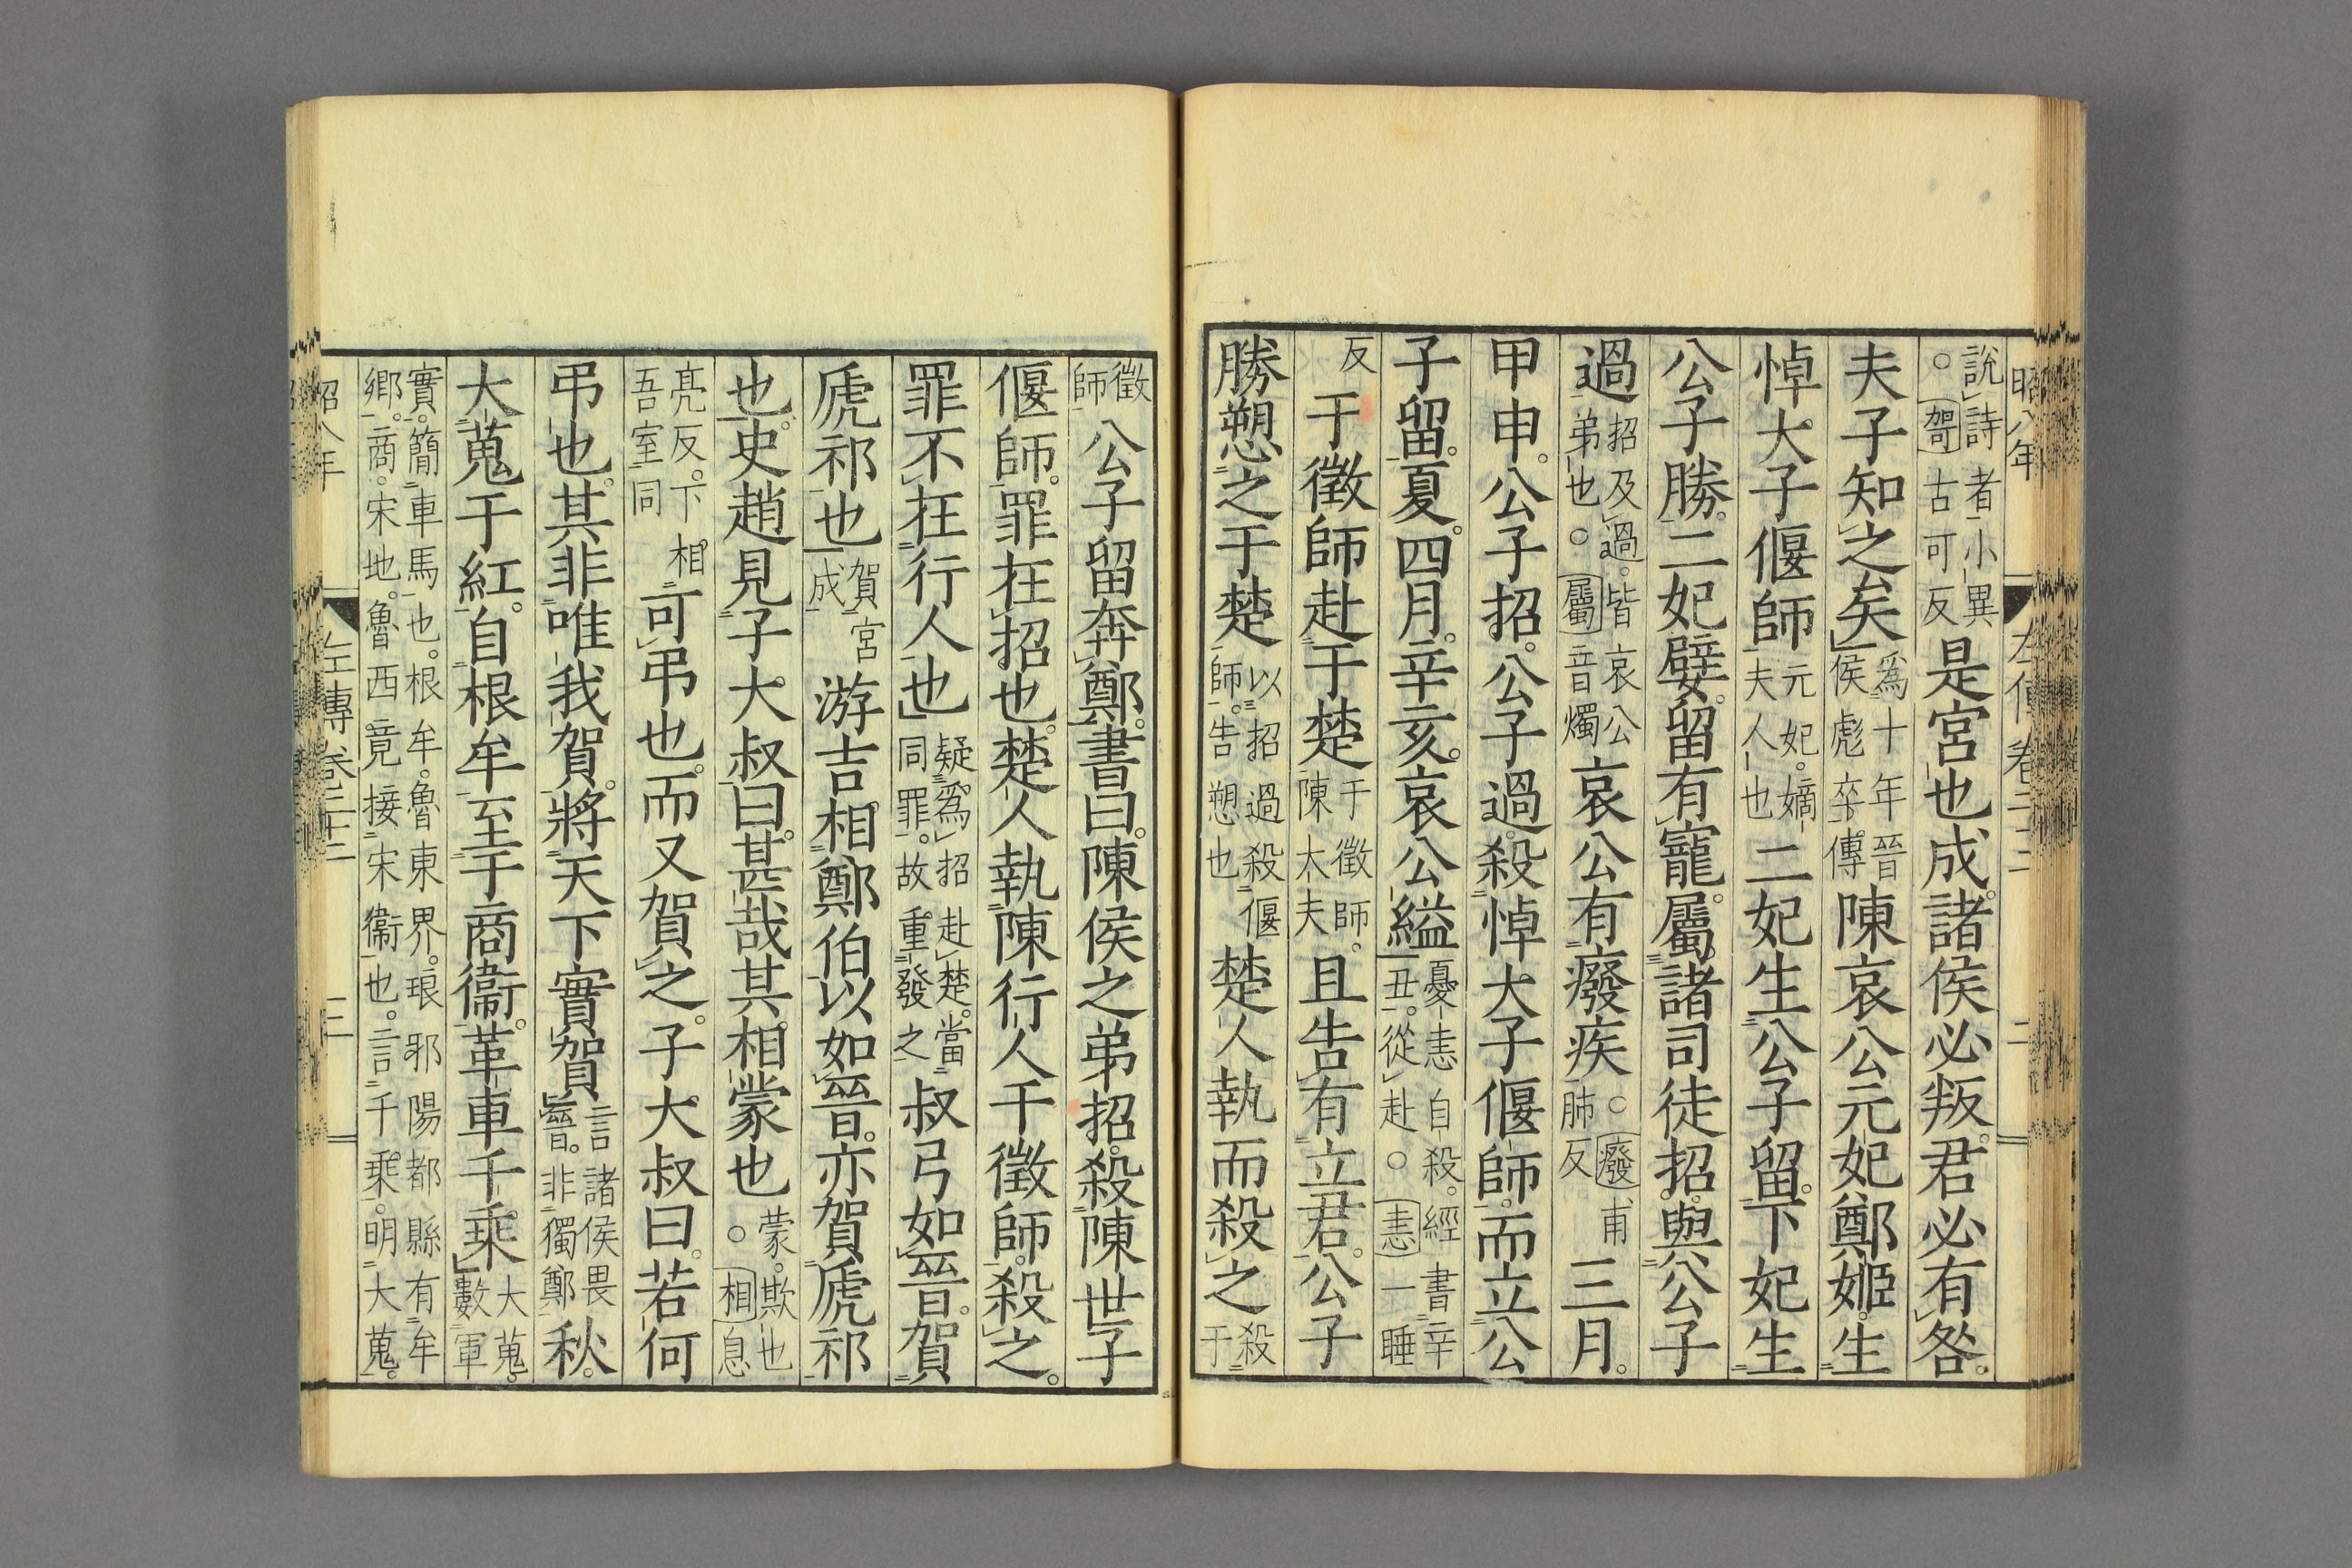 昭八年
左傳卷二十二
二
說詩者小異
○哿古可反
是宮也成諸侯必叛君必有咎
夫子知之矣
爲十年晉
侯彪卒傳
陳哀公元妃鄭姬生
悼大子偃師
元妃嫡
夫人也
二妃生公子留下妃生
公子勝二妃嬖留有寵屬諸司徒招與公子
過
招及過皆哀公
弟也○屬音燭
哀公有癈疾
○癈甫
肺反
三月
甲申公子招公子過殺悼大子偃師而立公
子留夏四月辛亥哀公縊
憂恚自殺經書辛
丑從赴○恚一睡
反
于徵師赴于楚
于徵師
陳大夫
且告有立君公子
勝愬之于楚
以招過殺偃
師告愬也
楚人執而殺之
殺
于
徵
師
公子留奔鄭書曰陳侯之弟招殺陳世子
偃師罪在招也楚人執陳行人干徵師殺之
罪不在行人也
疑爲招赴楚當
同罪故重發之
叔弓如晉賀
虒祁也
賀宮
成
游吉相鄭伯以如晉亦賀虒祁
也史趙見子大叔曰甚哉其相蒙也
蒙欺也
○相息
亮反下相
吾室同
可弔也而又賀之子大叔曰若何
弔也其非唯我賀將天下實賀
言諸侯畏
晉非獨鄭
秋
大蒐于紅自根牟至于商衞革車千乘
大蒐
數軍
實簡車馬也根牟魯東界琅邪陽都縣有牟
鄉商宋地魯西竟接宋衞也言千乘明大蒐
昭八年
左傳卷二十二
三